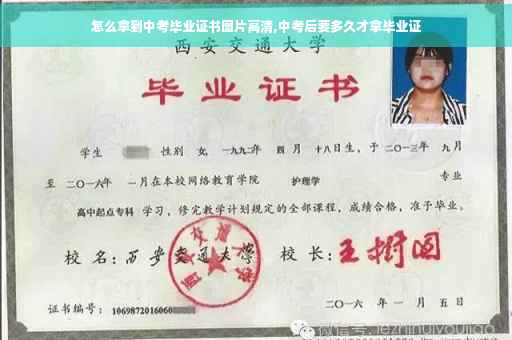 怎么拿到中考毕业证书图片高清,中考后要多久才拿毕业证
西安交通大学
毕业证书
学生 性别 女, 一九九二年 四月 十八日生, 于 二〇一三年 九月
至 二〇一六年 一月在本校网络教育学院 护理学 专业
高中起点专科 学习, 修完教学计划规定的全部课程, 成绩合格, 准予毕业。
校 名: 西安交通大学 校 长: 王树国
西安交通大学
证书编号: 1069872016060
二〇一六 年 一 月 五 日
微信号: jezhinuiyoujiao